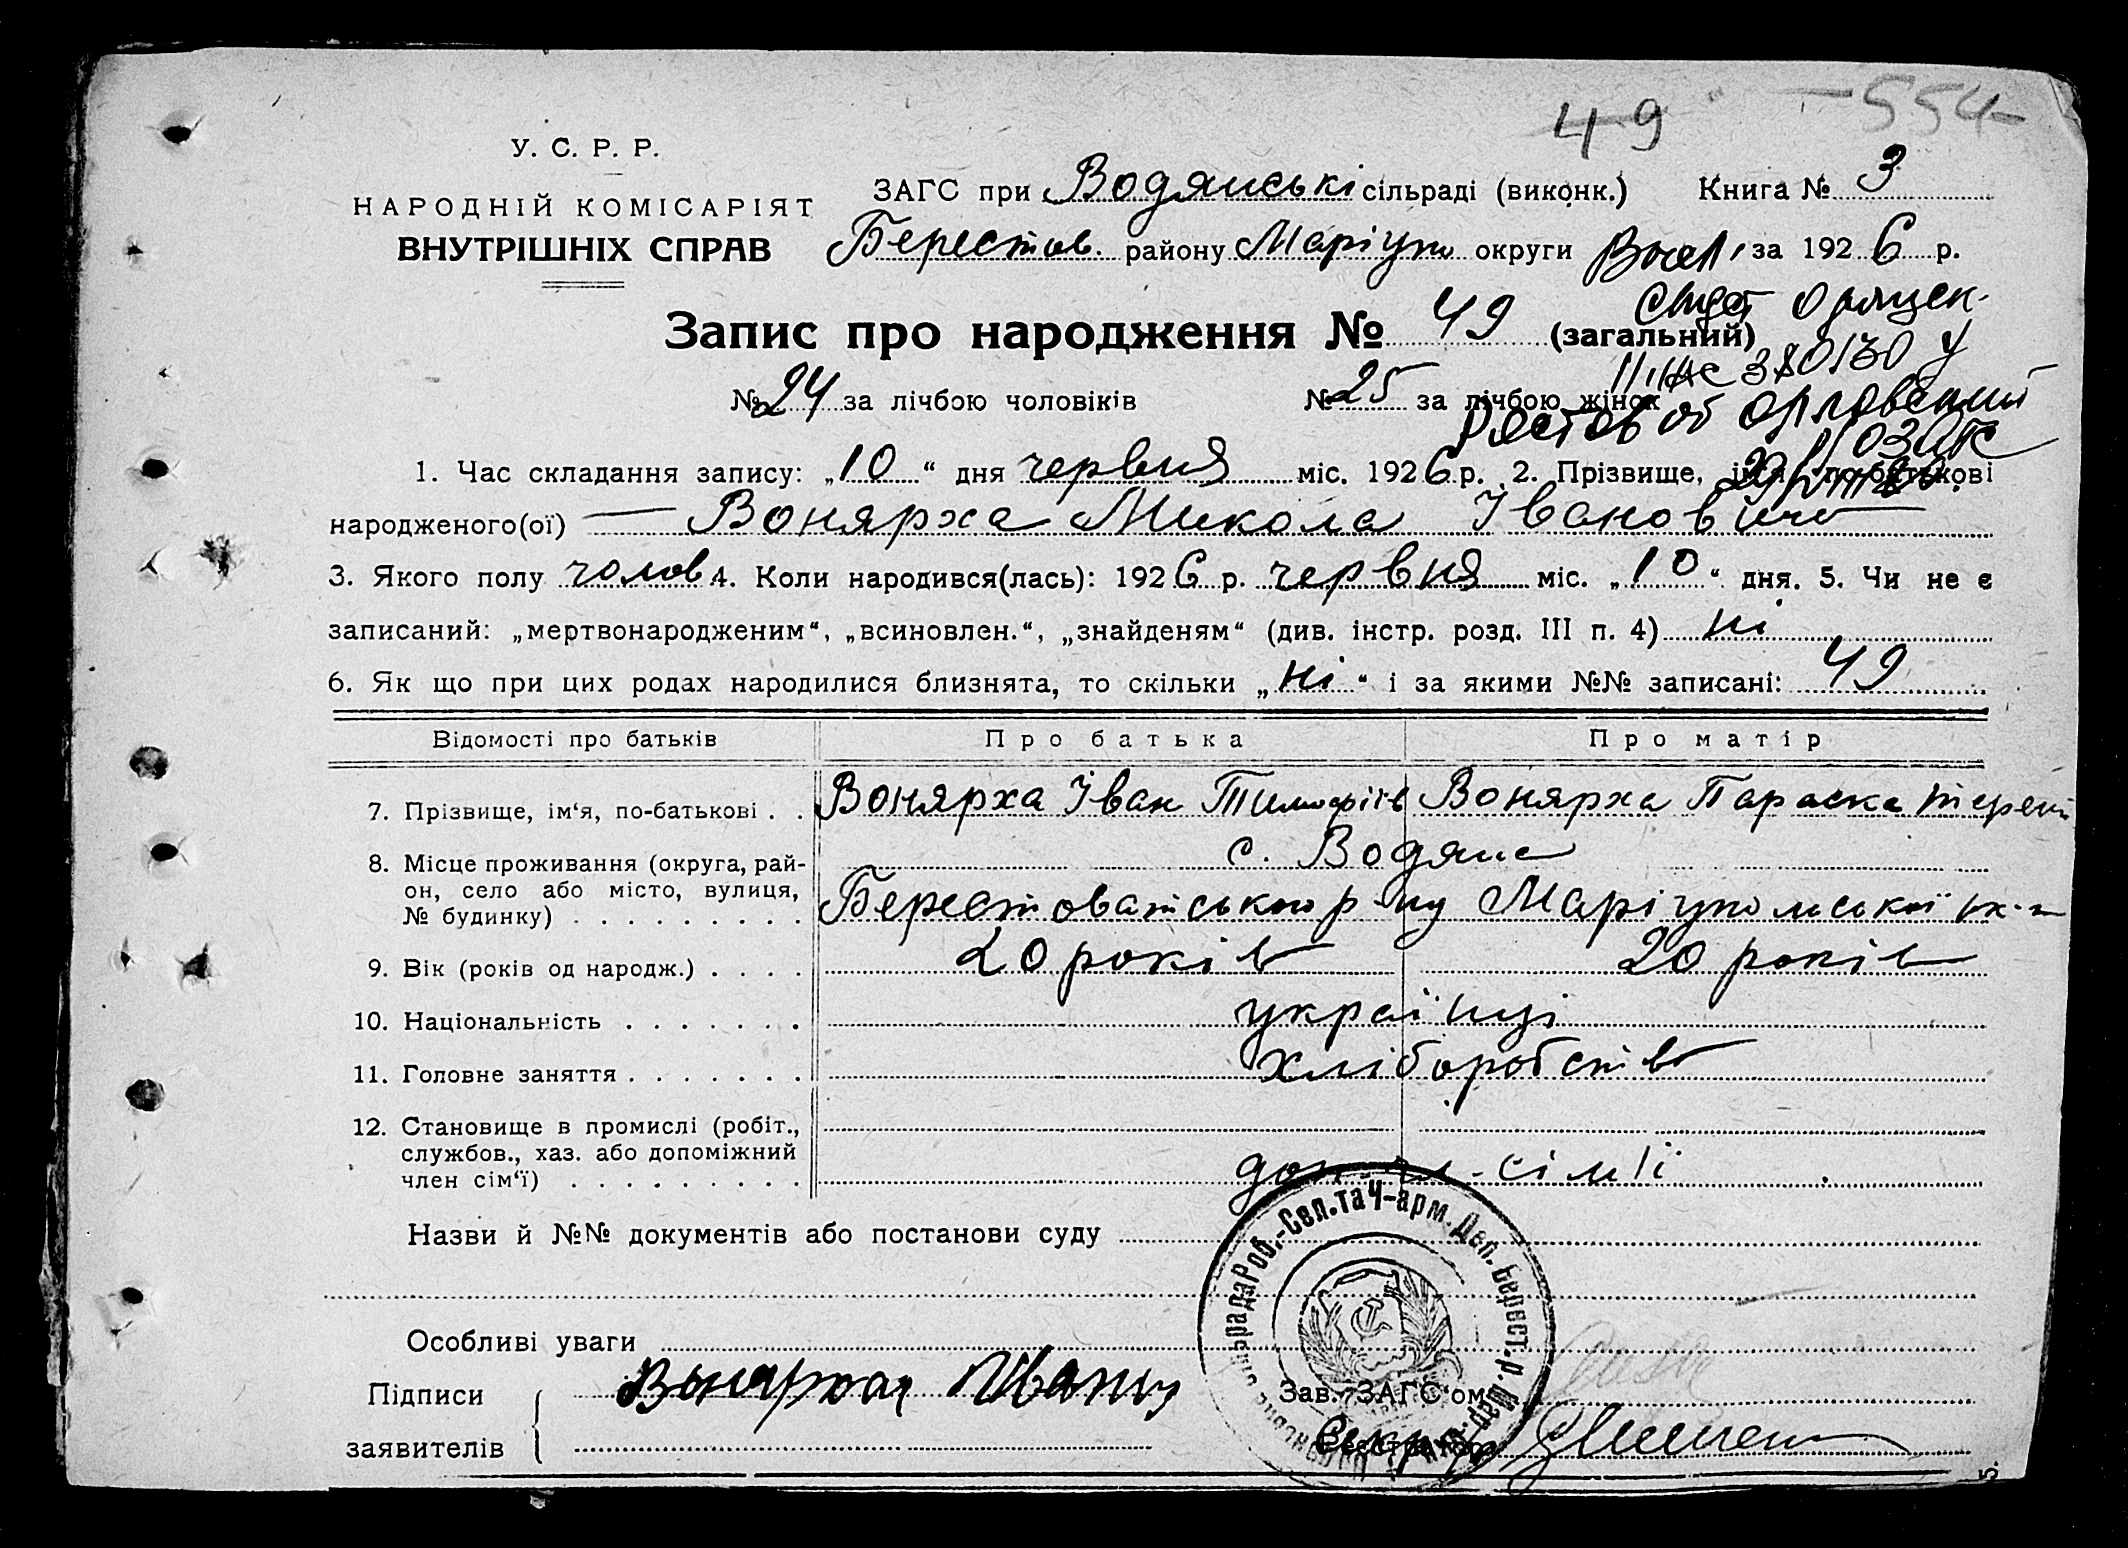 49 -554-
У. С. Р. Р.
НАРОДНІЙ КОМІСАРІЯТ
ВНУТРІШНІХ СПРАВ
ЗАГС при Водянські сільраді (виконк.) Книга № 3
Берестов. району Маріуп округи за 1926 р.
Запис про народження № 49 (загальний)
№ 24 за лічбою чоловіків № 25 за лічбою жінок
380130 у
1. Час складання запису: „10“ дня червня міс. 1926 р. 2. Прізвище, ім'я, по-батькові
народженого(ої) Вонярха Микола Іванович
3. Якого полу чолов 4. Коли народився(лась): 1926 р. червня міс. „10“ дня. 5. Чи не є
записаний: „мертвонародженим“, „всиновлен.“, „знайденям“ (див. інстр. розд. III п. 4) ні
6. Як що при цих родах народилися близнята, то скільки „ні“ і за якими №№ записані: 49
Відомості про батьків Про батька Про матір
7. Прізвище, ім'я, по-батькові . . Вонярха Іван Тимофіів Вонярха Параска
8. Місце проживання (округа, рай-
он, село або місто, вулиця,
№ будинку) . . . . . . . . .
с. Водяне
Берестоватського р-ну Маріупольської
9. Вік (років од народж.) . . . . 20 років 20 років
10. Національність . . . . . . . українці
11. Головне заняття . . . . . . . хліборобство
12. Становище в промислі (робіт.,
службов., хаз. або допоміжний
член сім'ї) . . . . . . . . .
доп. чл. сім'ї
Назви й №№ документів або постанови суду
Особливі уваги
Роб.-Сел. та Ч-арм. Деп. Берест. р. Мар.
Підписи
заявителів
Вонярха Иван
Зав. ЗАГС'ом
Секр
5.